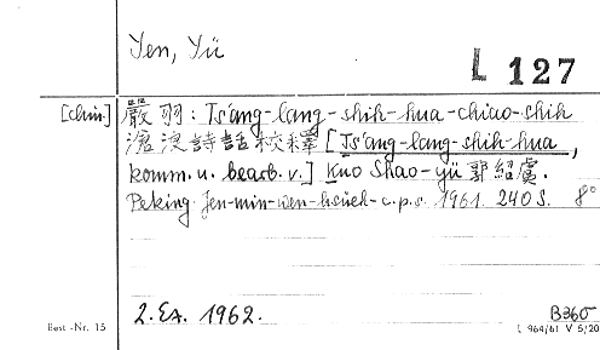 Yen, Yü
L 127
[chin.] 嚴羽: Ts'ang-lang-shih-hua-chiao-shih
滄浪詩話校釋 [Ts'ang-lang-shih-hua,
komm. u. bearb. v.] Kuo Shao-yü 郭紹虞.
Peking: Jen-min-wen-hsüeh-c.p.s. 1961. 240 S. 8°
2. Ex. 1962. B365
Best.-Nr. 15 L 964/61 V 5/20